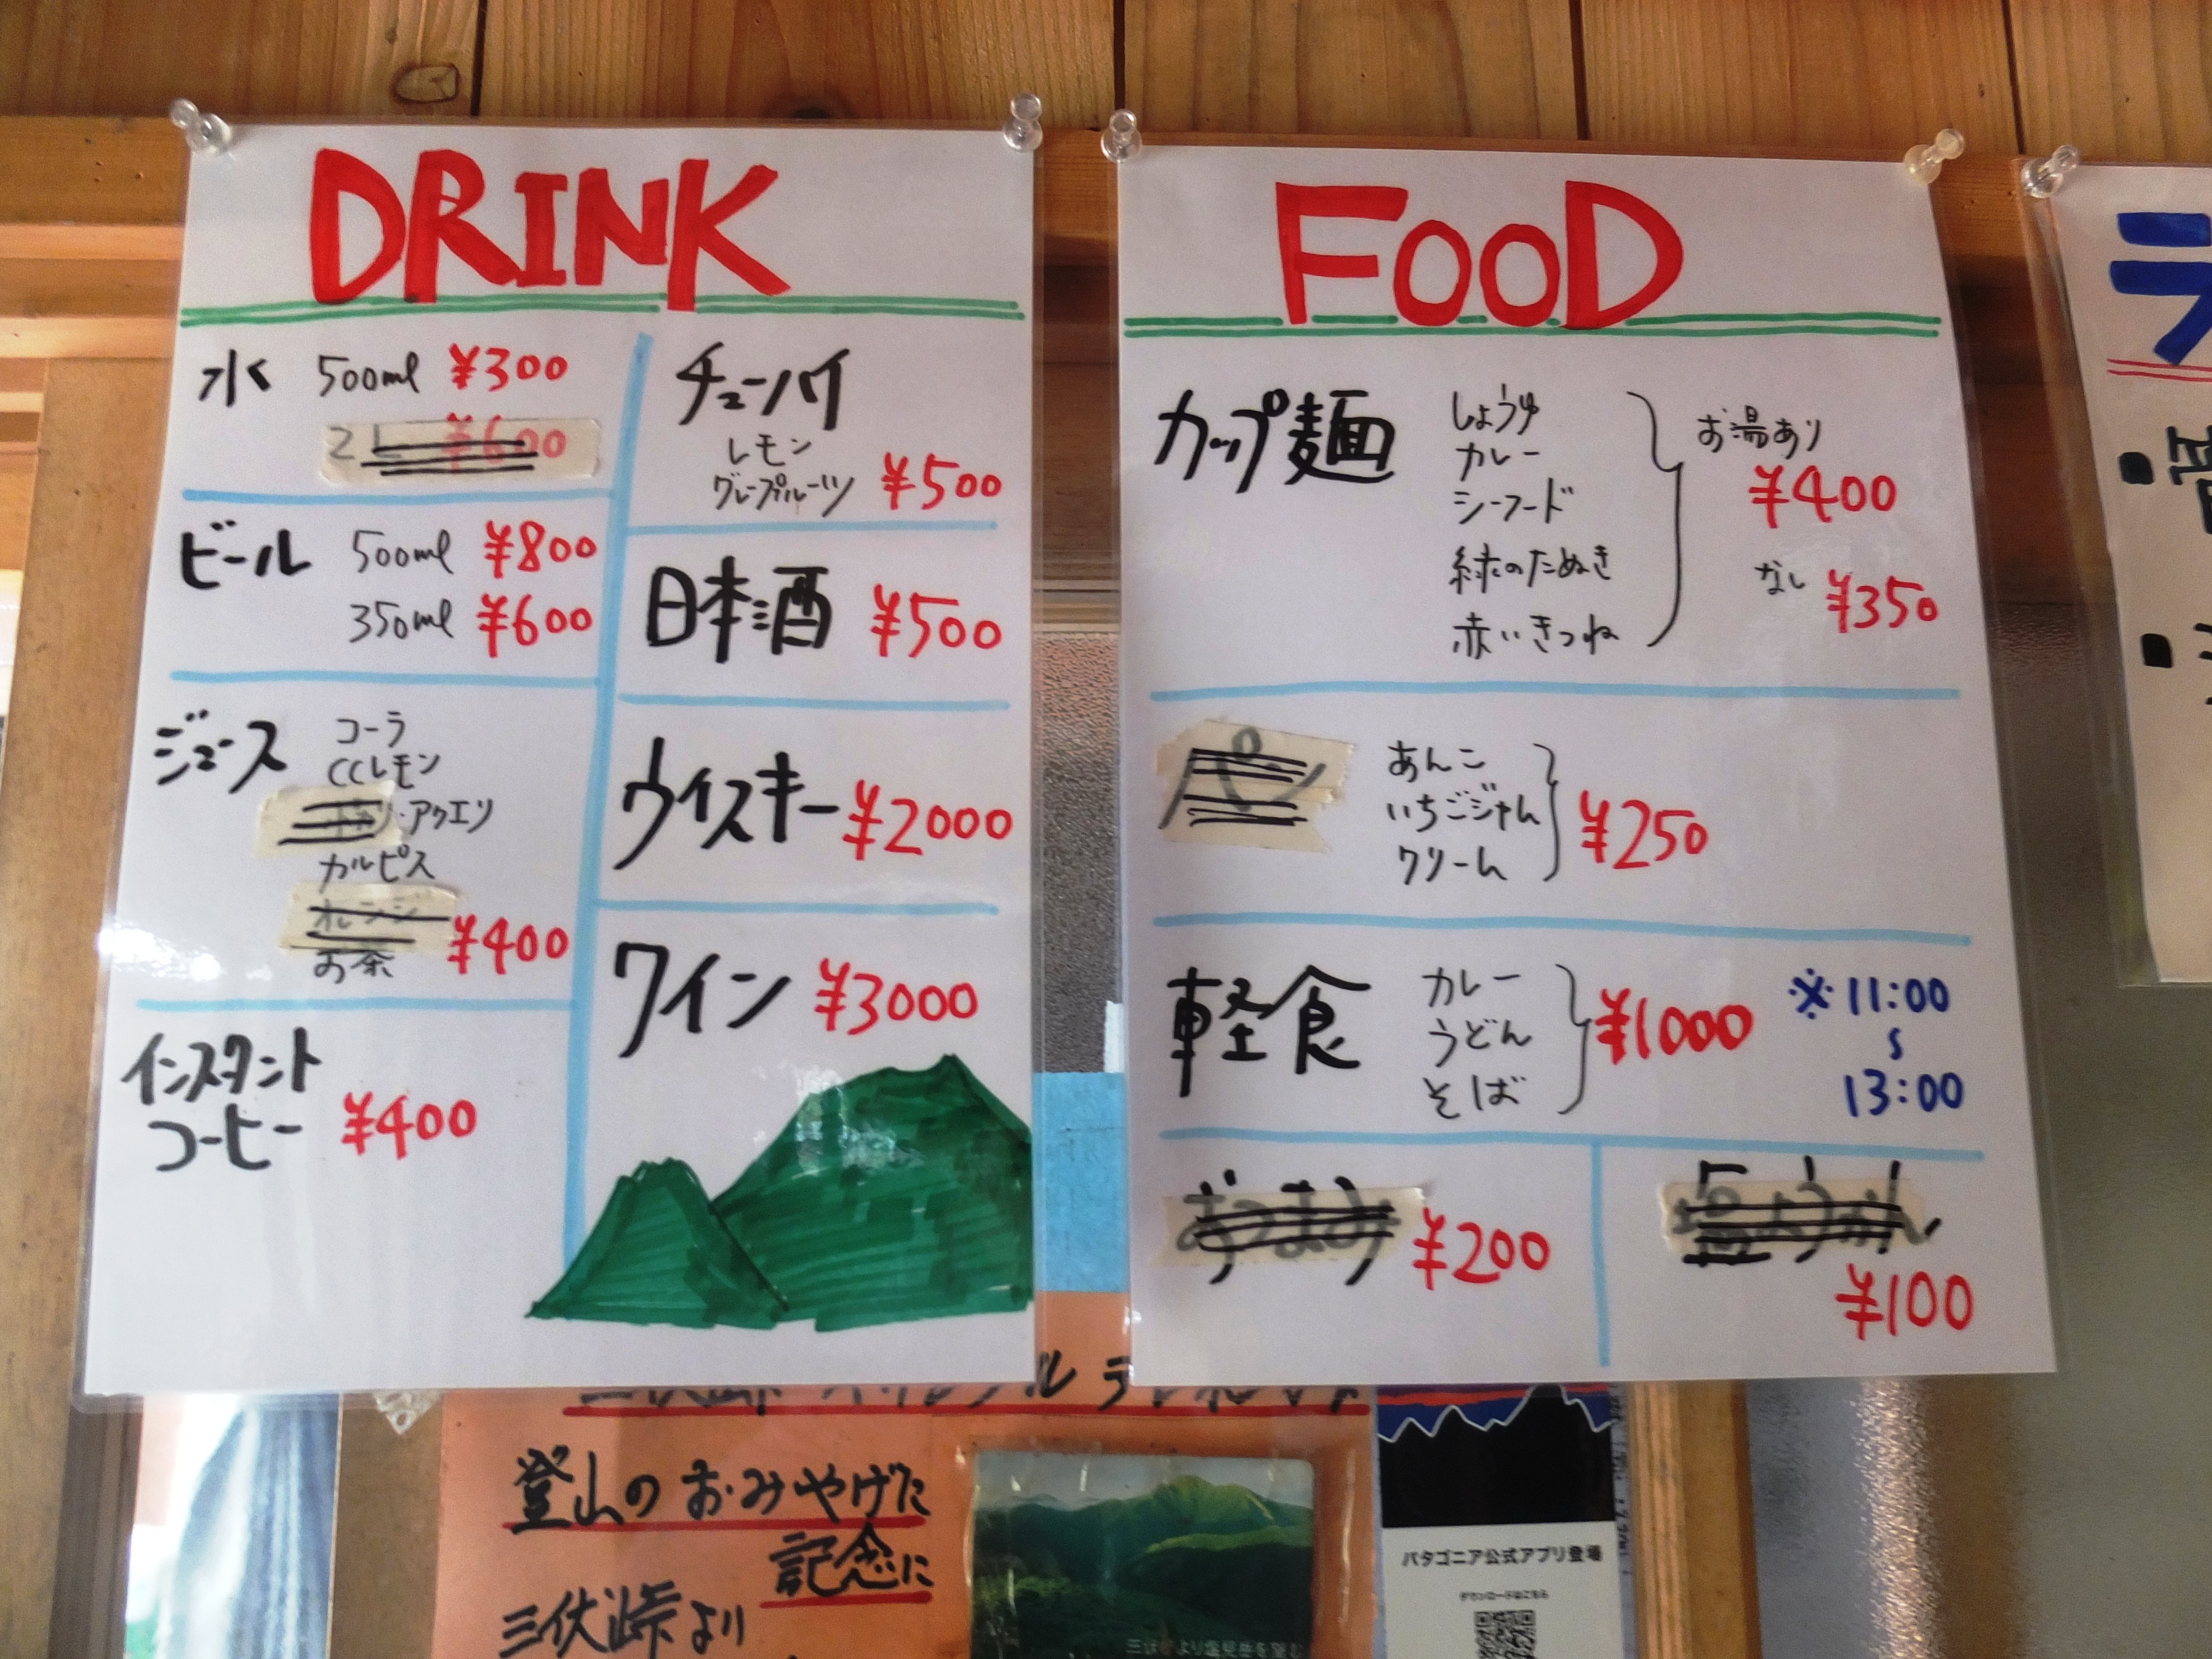 DRINK
水 500ml ¥300
2L ¥600
ビール 500ml ¥800
350ml ¥600
ジュース コーラ
CCレモン
・アクエリ
カルピス
オレンジ
お茶 ¥400
インスタント
コーヒー ¥400
チューハイ
レモン
グレープフルーツ ¥500
日本酒 ¥500
ウイスキー ¥2000
ワイン ¥3000
FOOD
カップ麺 しょうゆ
カレー
シーフード
緑のたぬき
赤いきつね
お湯あり
¥400
なし ¥350
パ
あんこ
いちごジャム
クリーム
¥250
軽食 カレー
うどん
そば
¥1000
※11:00
〜
13:00
おつまみ ¥200
¥100
ラ
登山のおみやげに
記念に
三伏峠より
三伏峠より塩見岳を望む
パタゴニア公式アプリ登場
ダウンロードはこちら